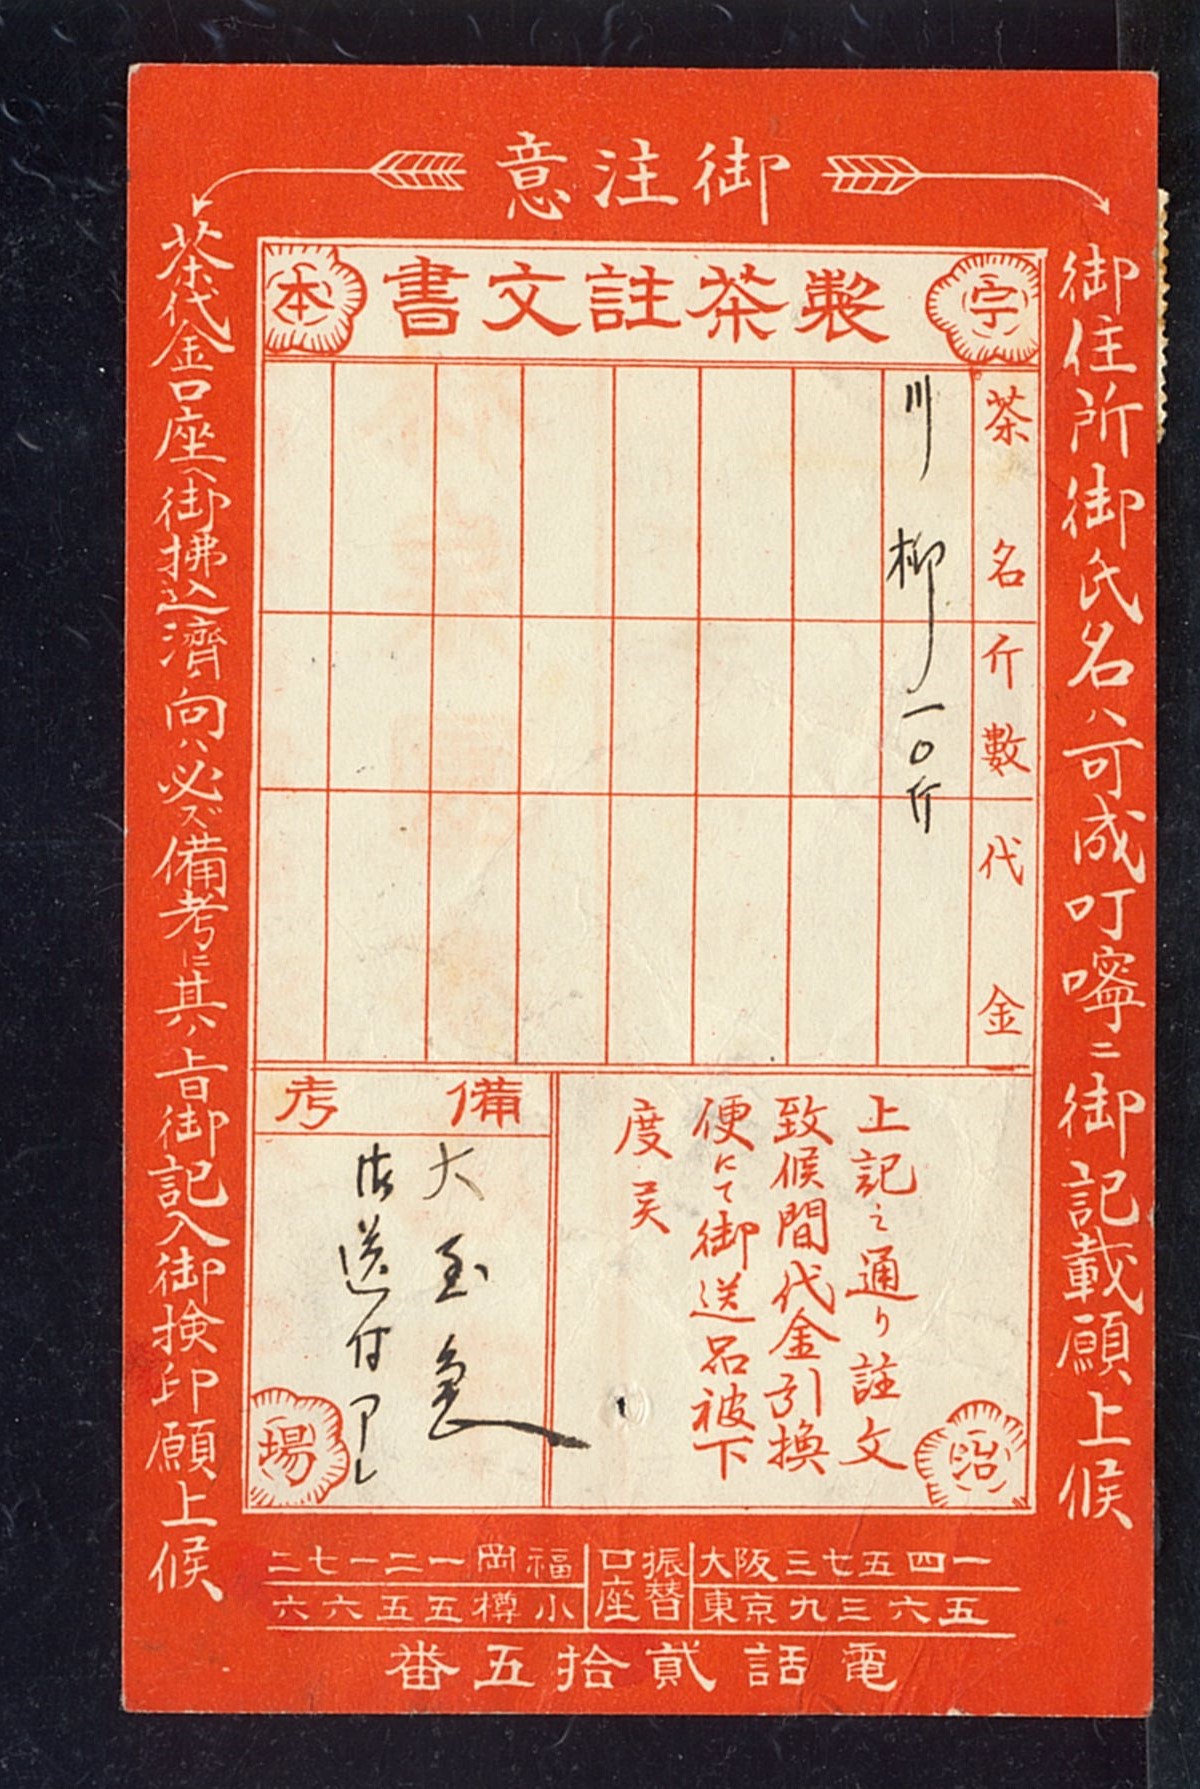 御注意
御住所御氏名ハ可成叮嚀ニ御記載願上候
製茶註文書
宇
治
本
場
茶名
斤數
代金
川柳 一〇斤
上記之通り註文
致候間代金引換
便にて御送品被下
度候
備考
大至急
御送付アレ
茶代金口座へ御拂込濟向ハ必ズ備考に其ハ旨御記入御検印願上候
振替口座
大阪三七五四一
東京九三六五
福岡一二一七二
小樽五五六六
電話貳拾五番